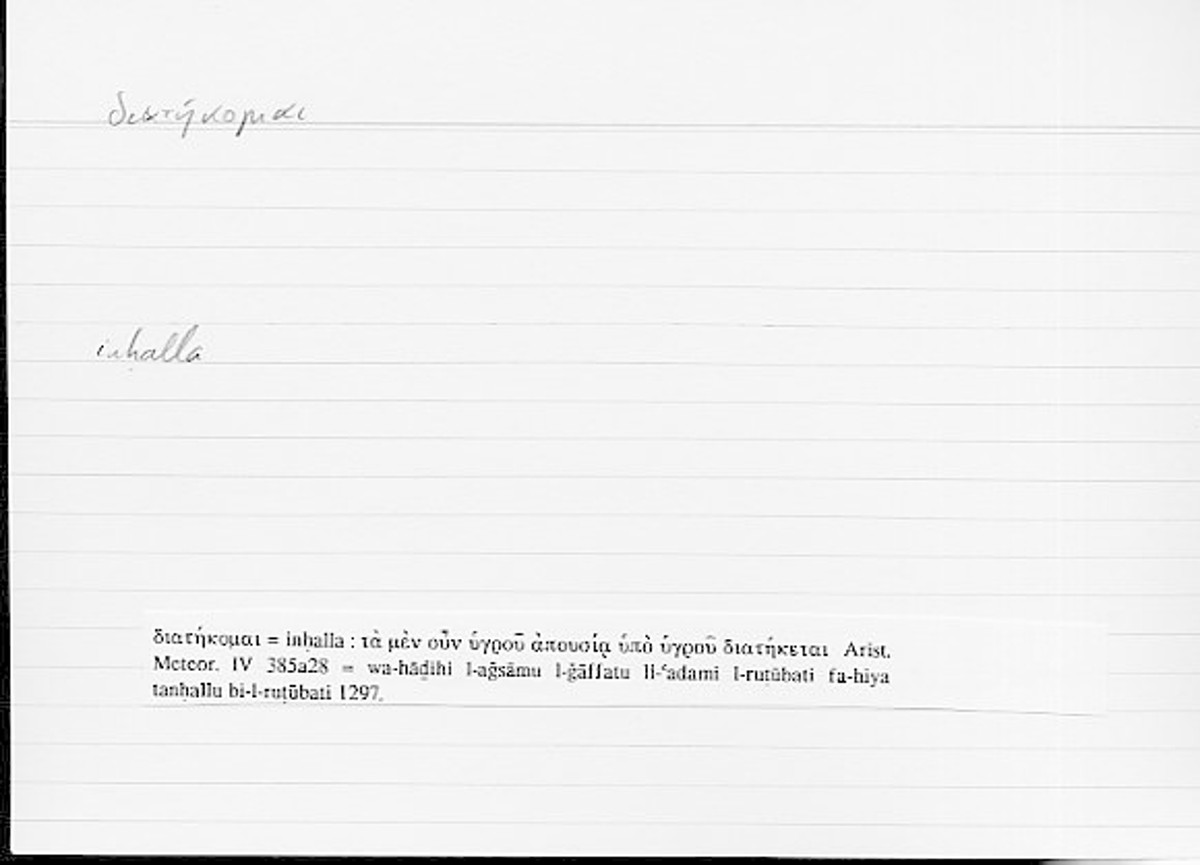 διατήκομαι
inḥalla
διατήκομαι = inḥalla : τὰ μὲν οὖν ὑγροῦ ἀπουσίᾳ ὑπὸ ὑγροῦ διατήκεται Arist.
Meteor. IV 385a28 = wa-hāḏihi l-aǧsāmu l-ǧāffatu li-ʿadami l-ruṭūbati fa-hiya
tanḥallu bi-l-ruṭūbati 1297.